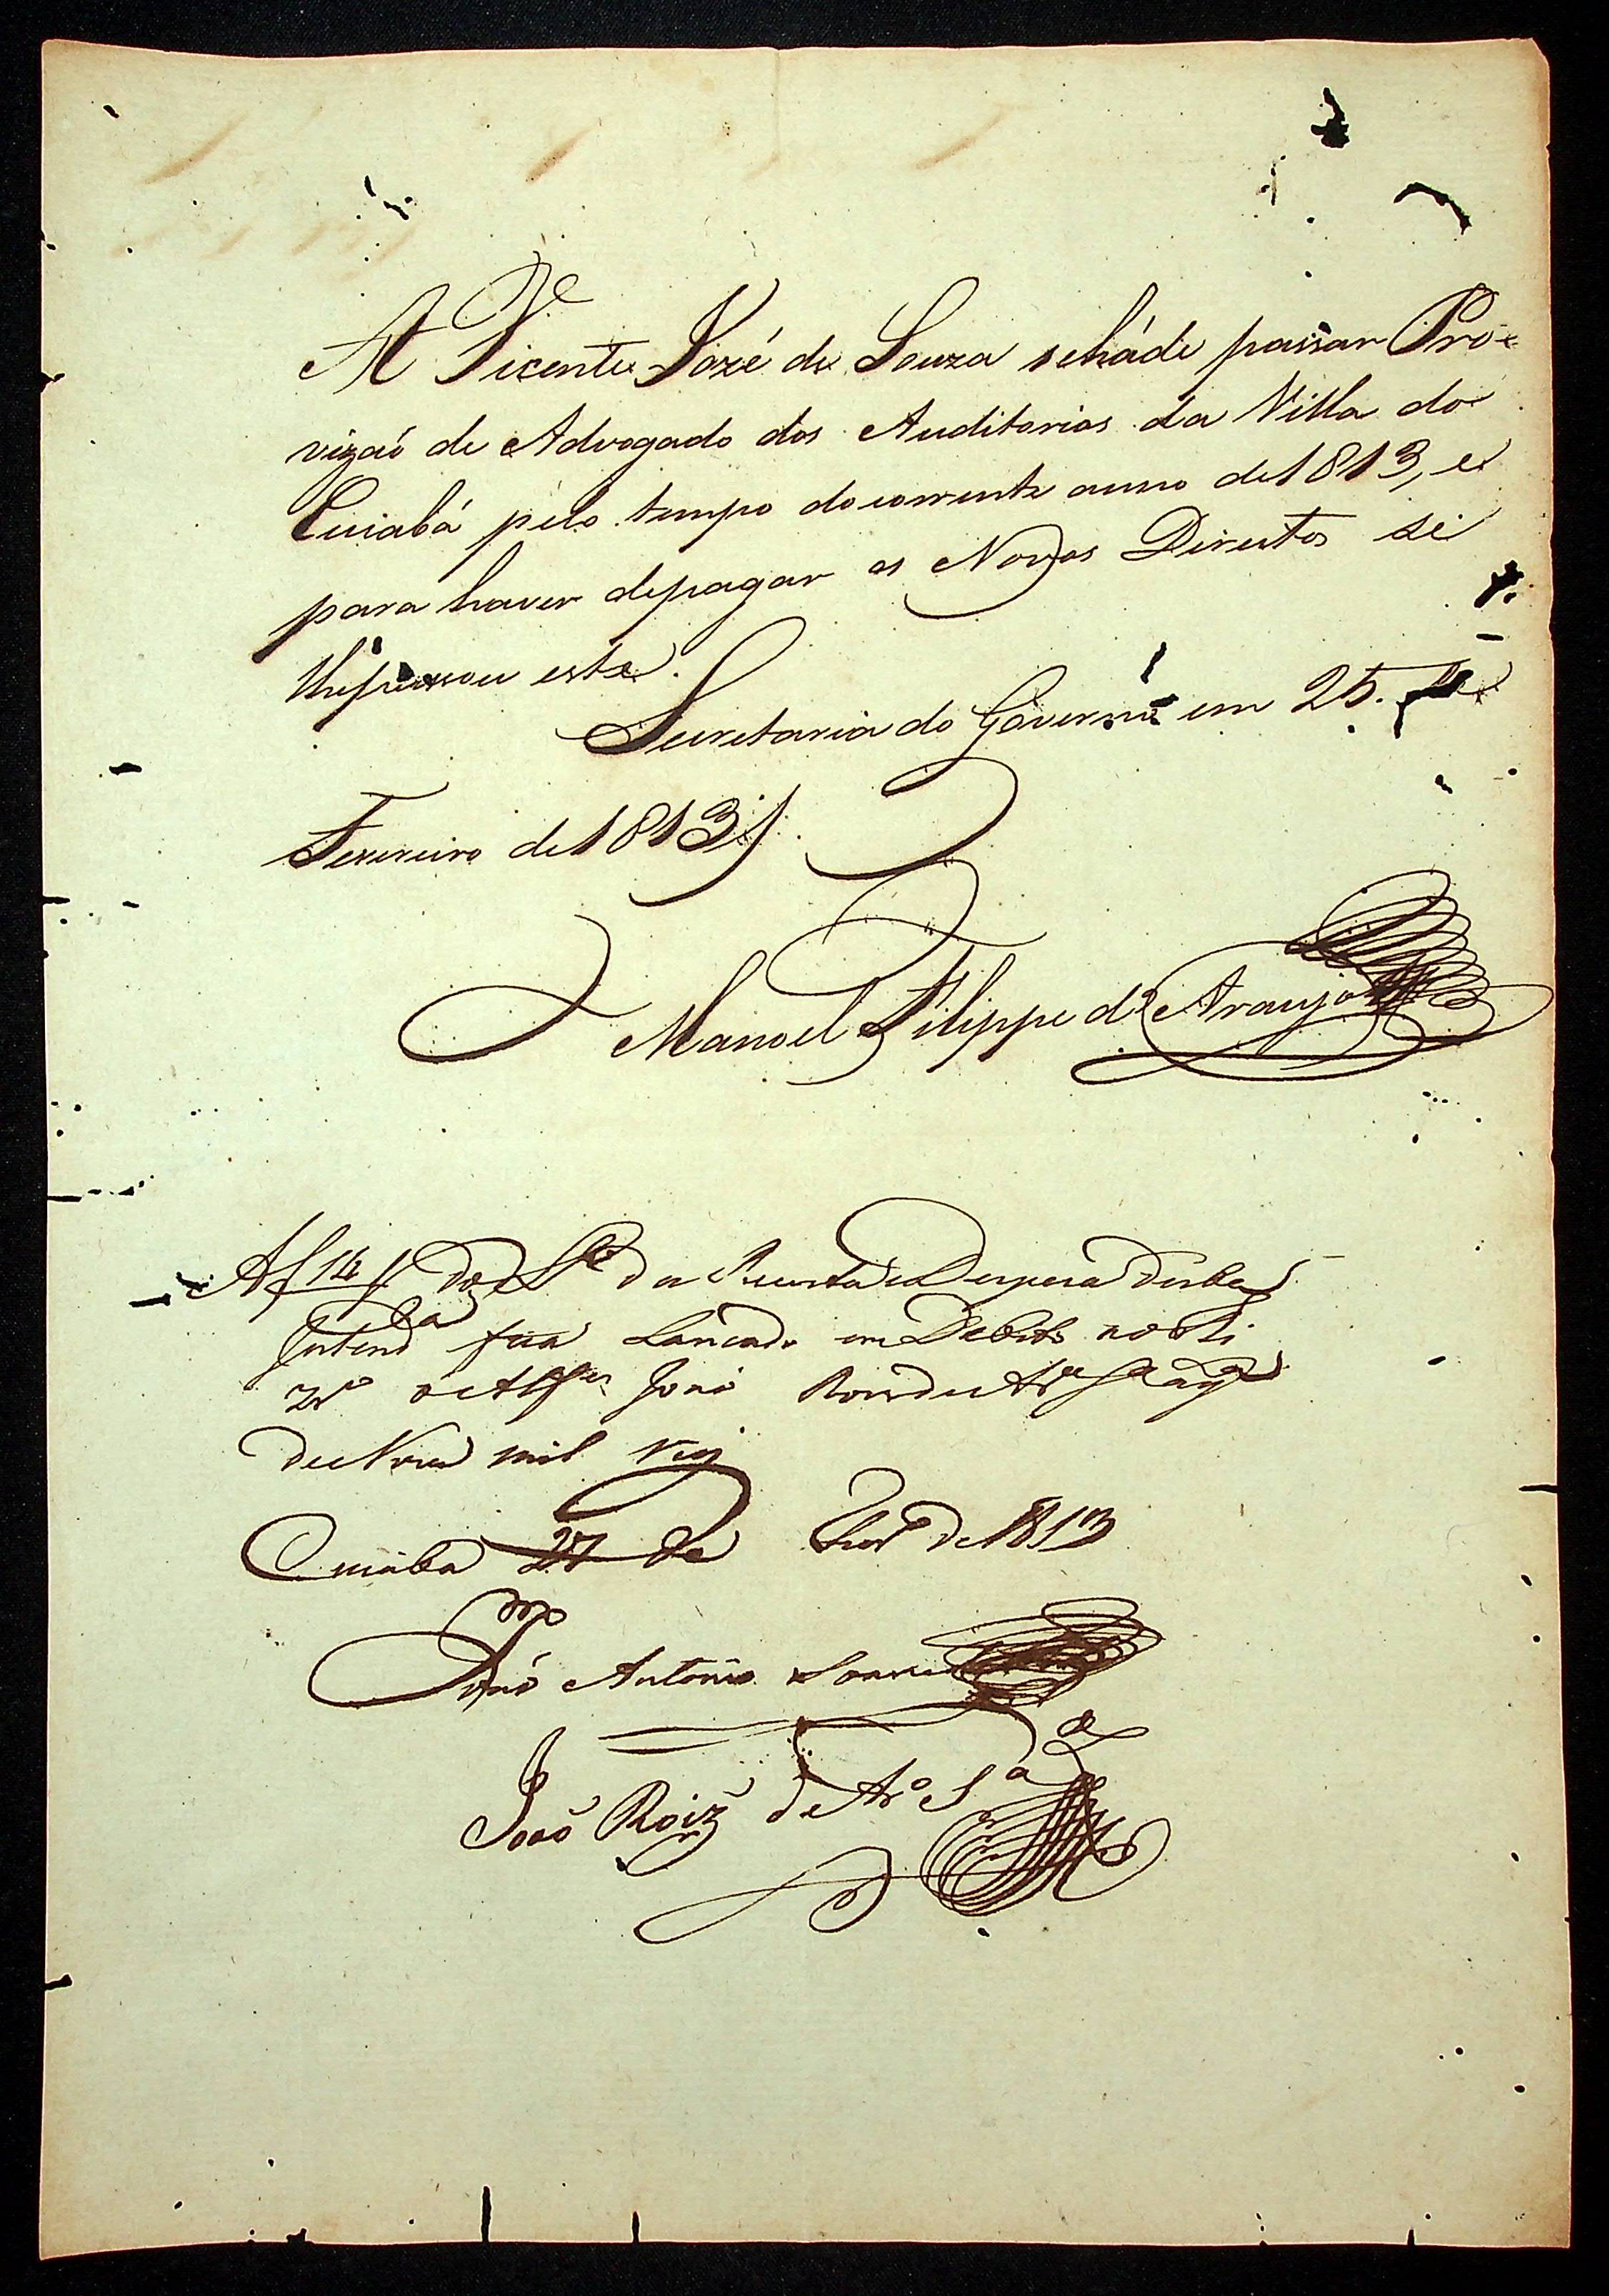 A Vicente Jozé de Souza seháde passar Pro-
vizaõ de Advogado dos Auditorios da Villa do
Cuiabá pelo tempo docorrente anno de1813, e
para haver depagar os Novos Direitos se
lhepassou esta.
Secretaria do Governo em 25. de
Fevereiro de1813
Manoel Filippe de Araujo
Af 14 do Lº da Receita e Despesa desta
Intendª fica Lançado em Debito
João
mil reis
Cuiaba 27 de Fevº de 1813
João Antonio
João Roiz de Arº S.ª